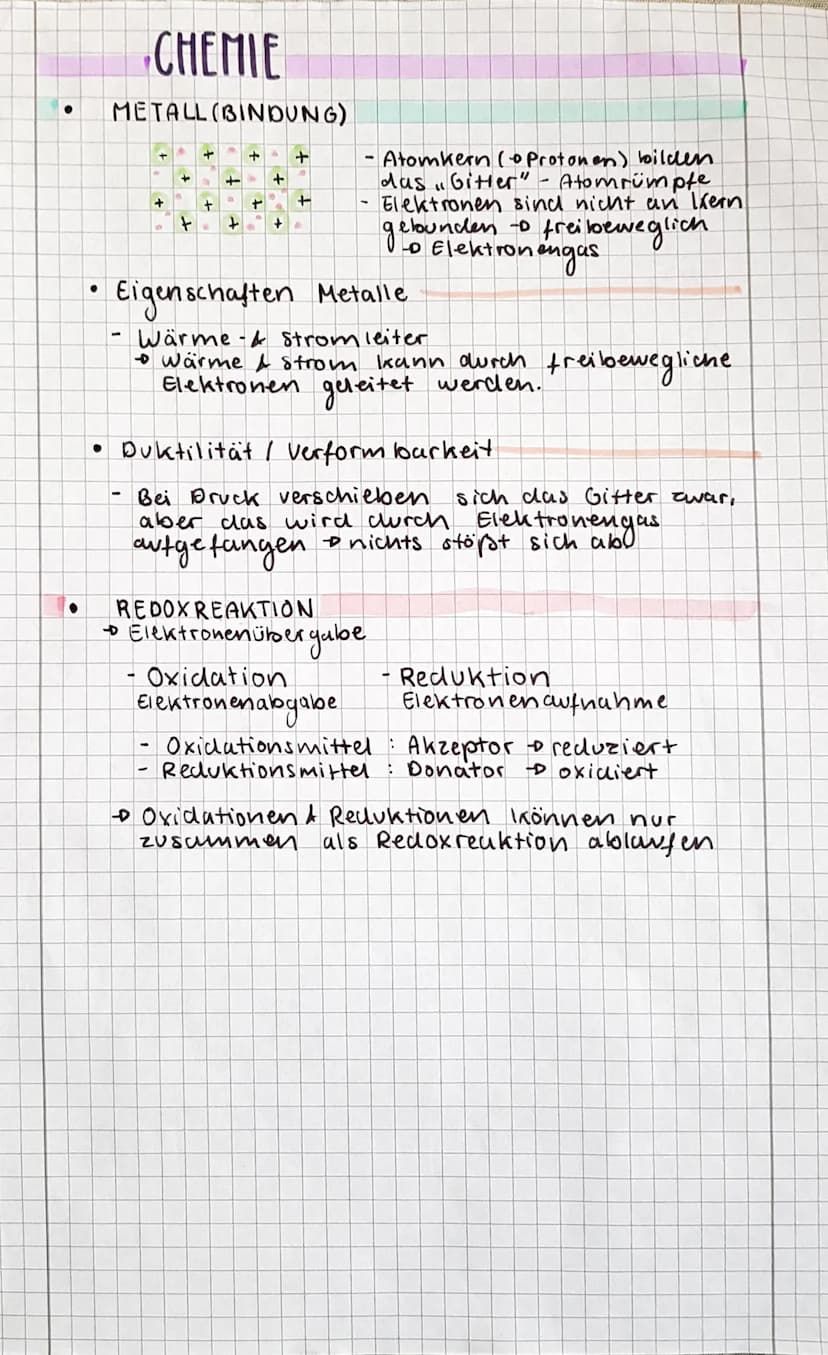 CHEMIE
• METALL(BINDUNG)
+ + + +
+ + +
+ + + +
+ + +
- Atomkern (→ Protonen) bilden
das „Gitter" - Atomrümpfe
- Elektronen sind nicht an Kern
gebunden → freibeweglich
→ Elektronengas
• Eigenschaften Metalle
- Wärme- & Stromleiter
→ Wärme & Strom kann durch freibewegliche
Elektronen geleitet werden.
• Duktilität / Verformbarkeit
- Bei Druck verschieben sich das Gitter zwar,
aber das wird durch Elektronengas
aufgefangen → nichts stößt sich ab
• REDOXREAKTION
→ Elektronenübergabe
- Oxidation - Reduktion
Elektronenabgabe Elektronenaufnahme
- Oxidationsmittel : Akzeptor → reduziert
- Reduktionsmittel : Donator → oxidiert
→ Oxidationen & Reduktionen können nur
zusammen als Redoxreaktion ablaufen